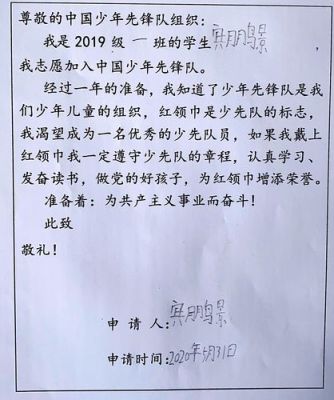 尊敬的中国少年先锋队组织：
我是 2019 级 一 班的学生宾月鸣景
我志愿加入中国少年先锋队。
经过一年的准备，我知道了少年先锋队是我
们少年儿童的组织，红领巾是少先队的标志，
我渴望成为一名优秀的少先队员，如果我戴上
红领巾我一定遵守少先队的章程，认真学习、
发奋读书，做党的好孩子，为红领巾增添荣誉。
准备着：为共产主义事业而奋斗！
此致
敬礼！
申 请 人：
申请时间：2020年5月31日